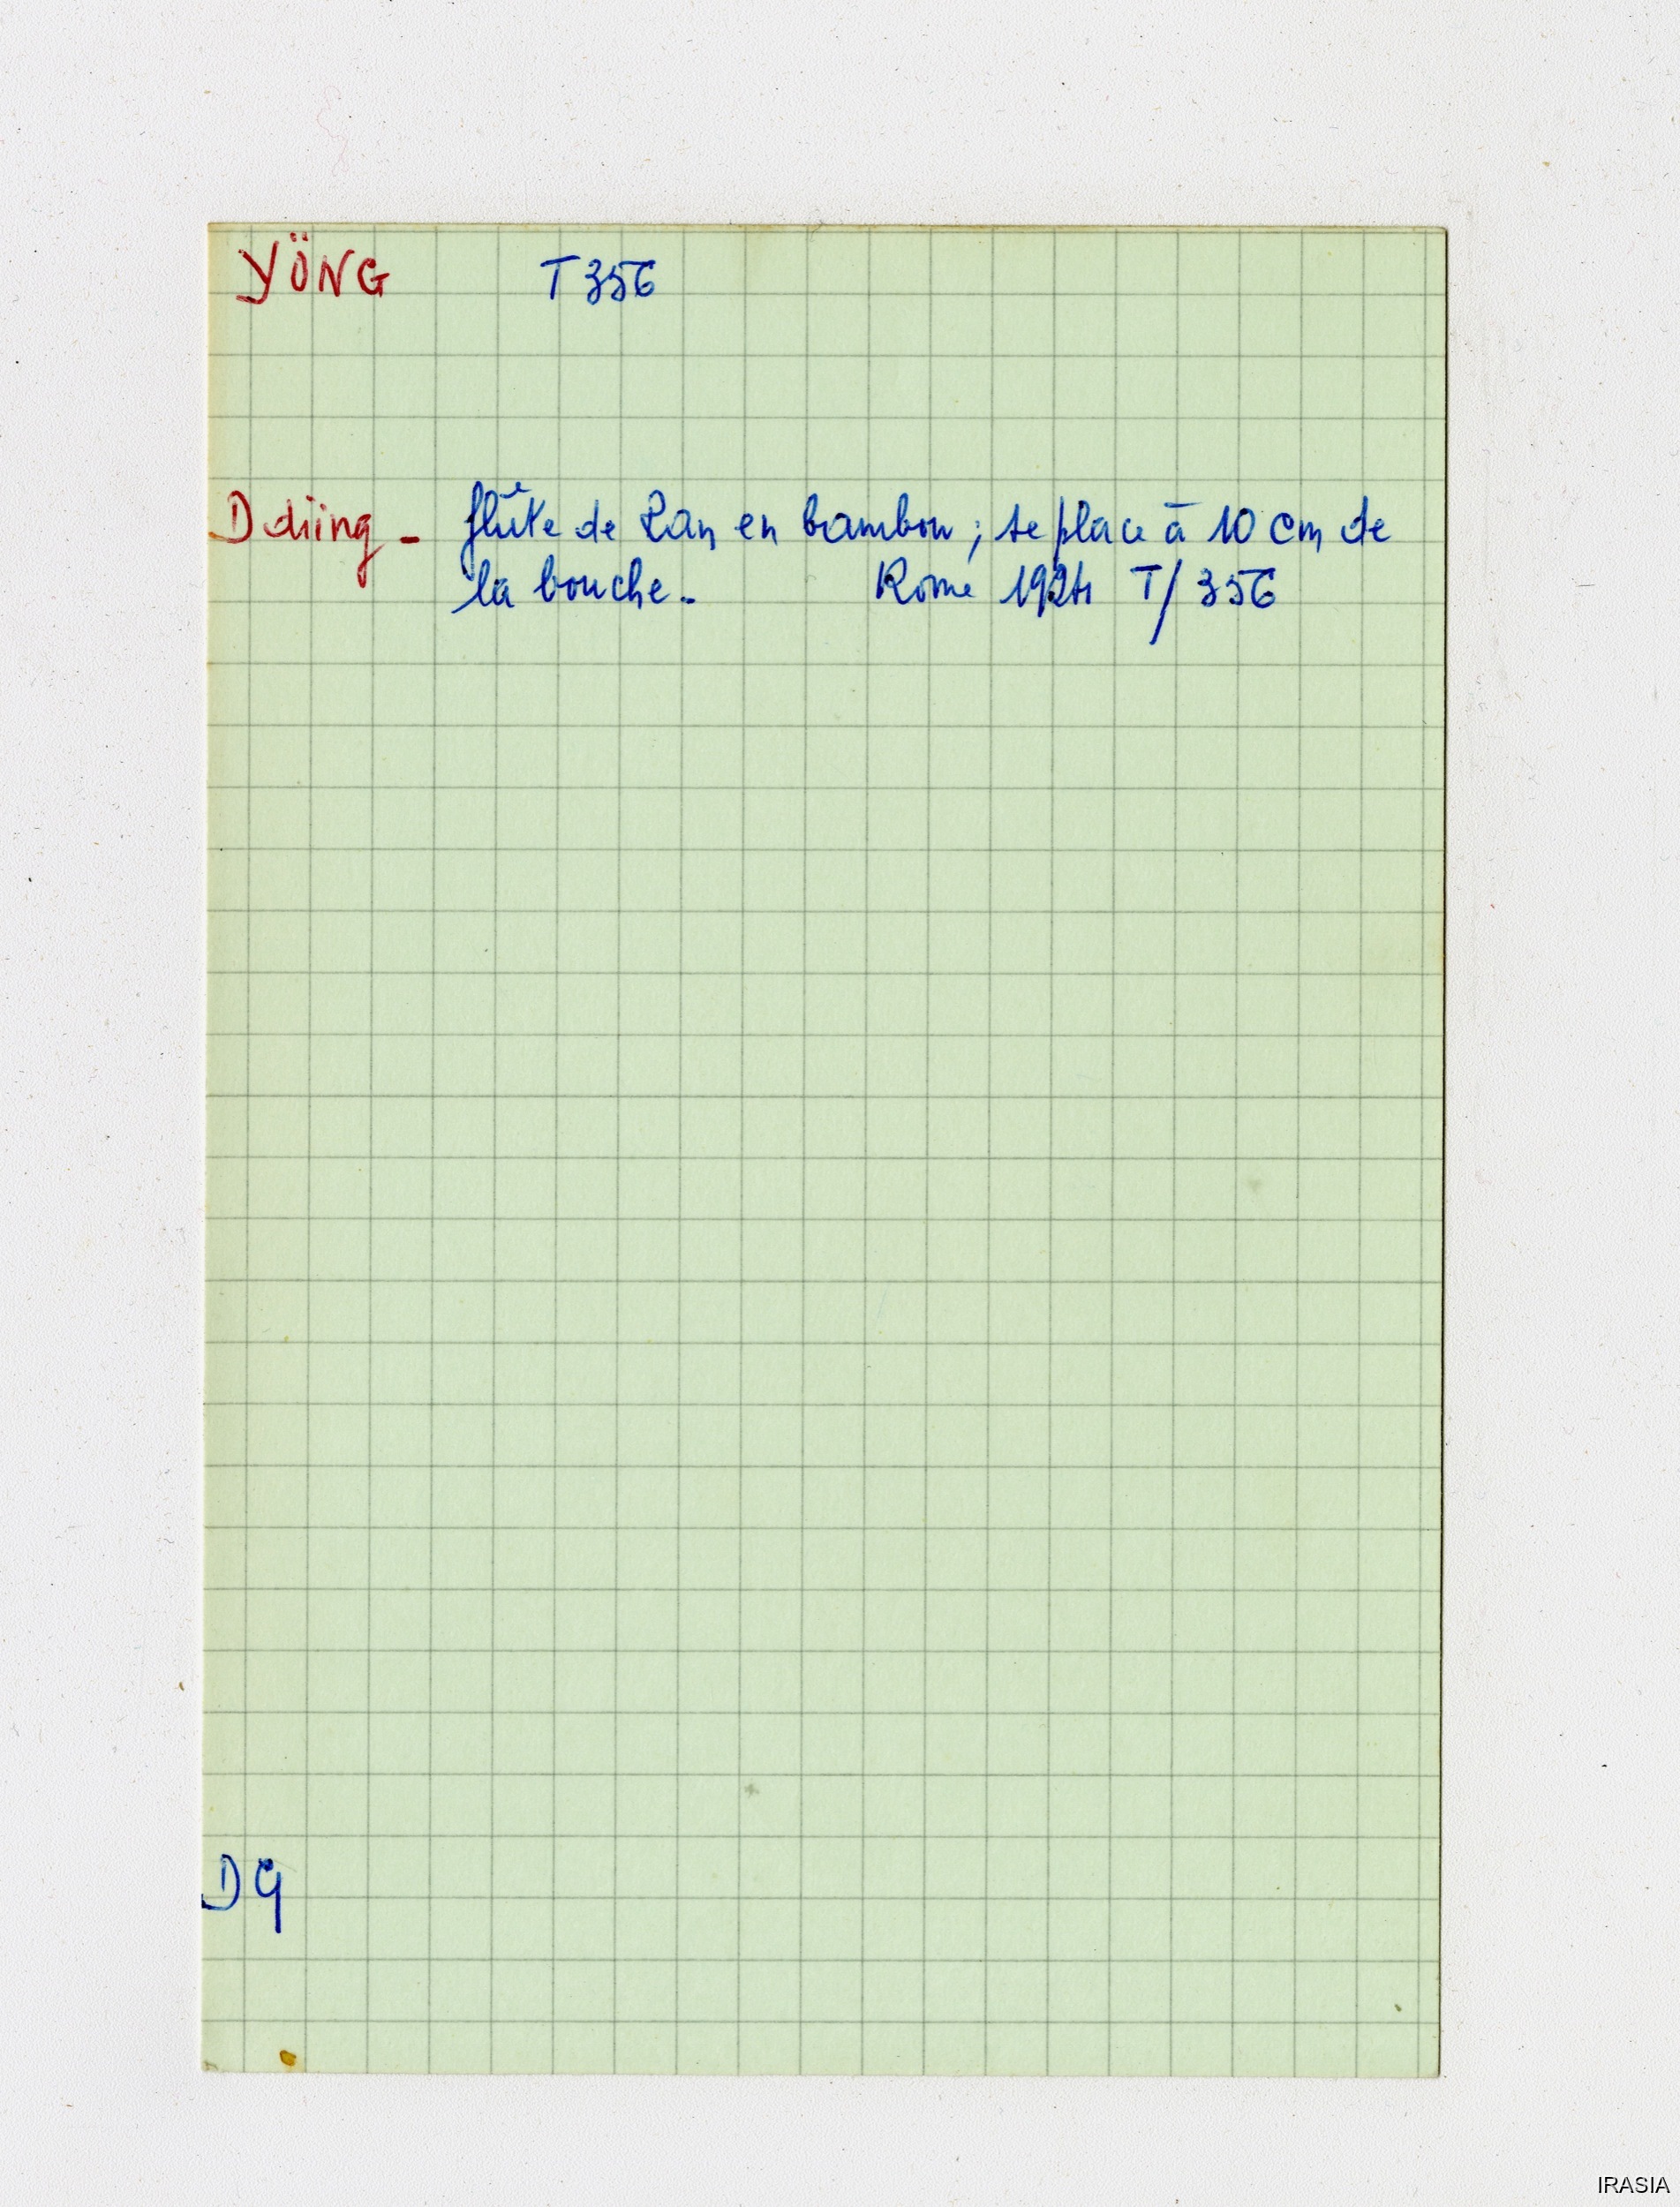 YÖNG T 356
flûte de Pan en bambou ; se place à 10 cm de
la bouche - Rome 1924 T/ 356
D9
IRASIA